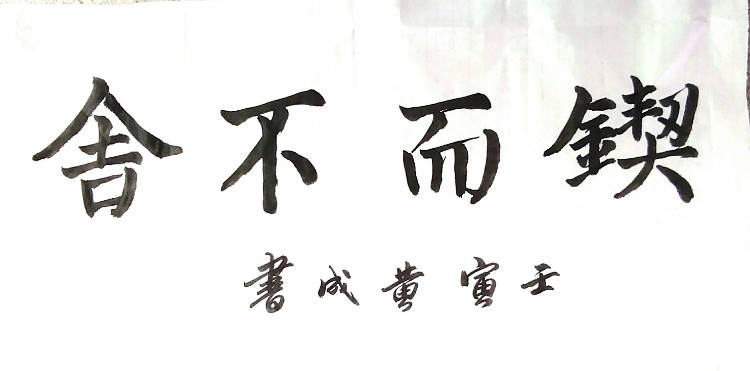 鍥而不舍
壬寅黄成書